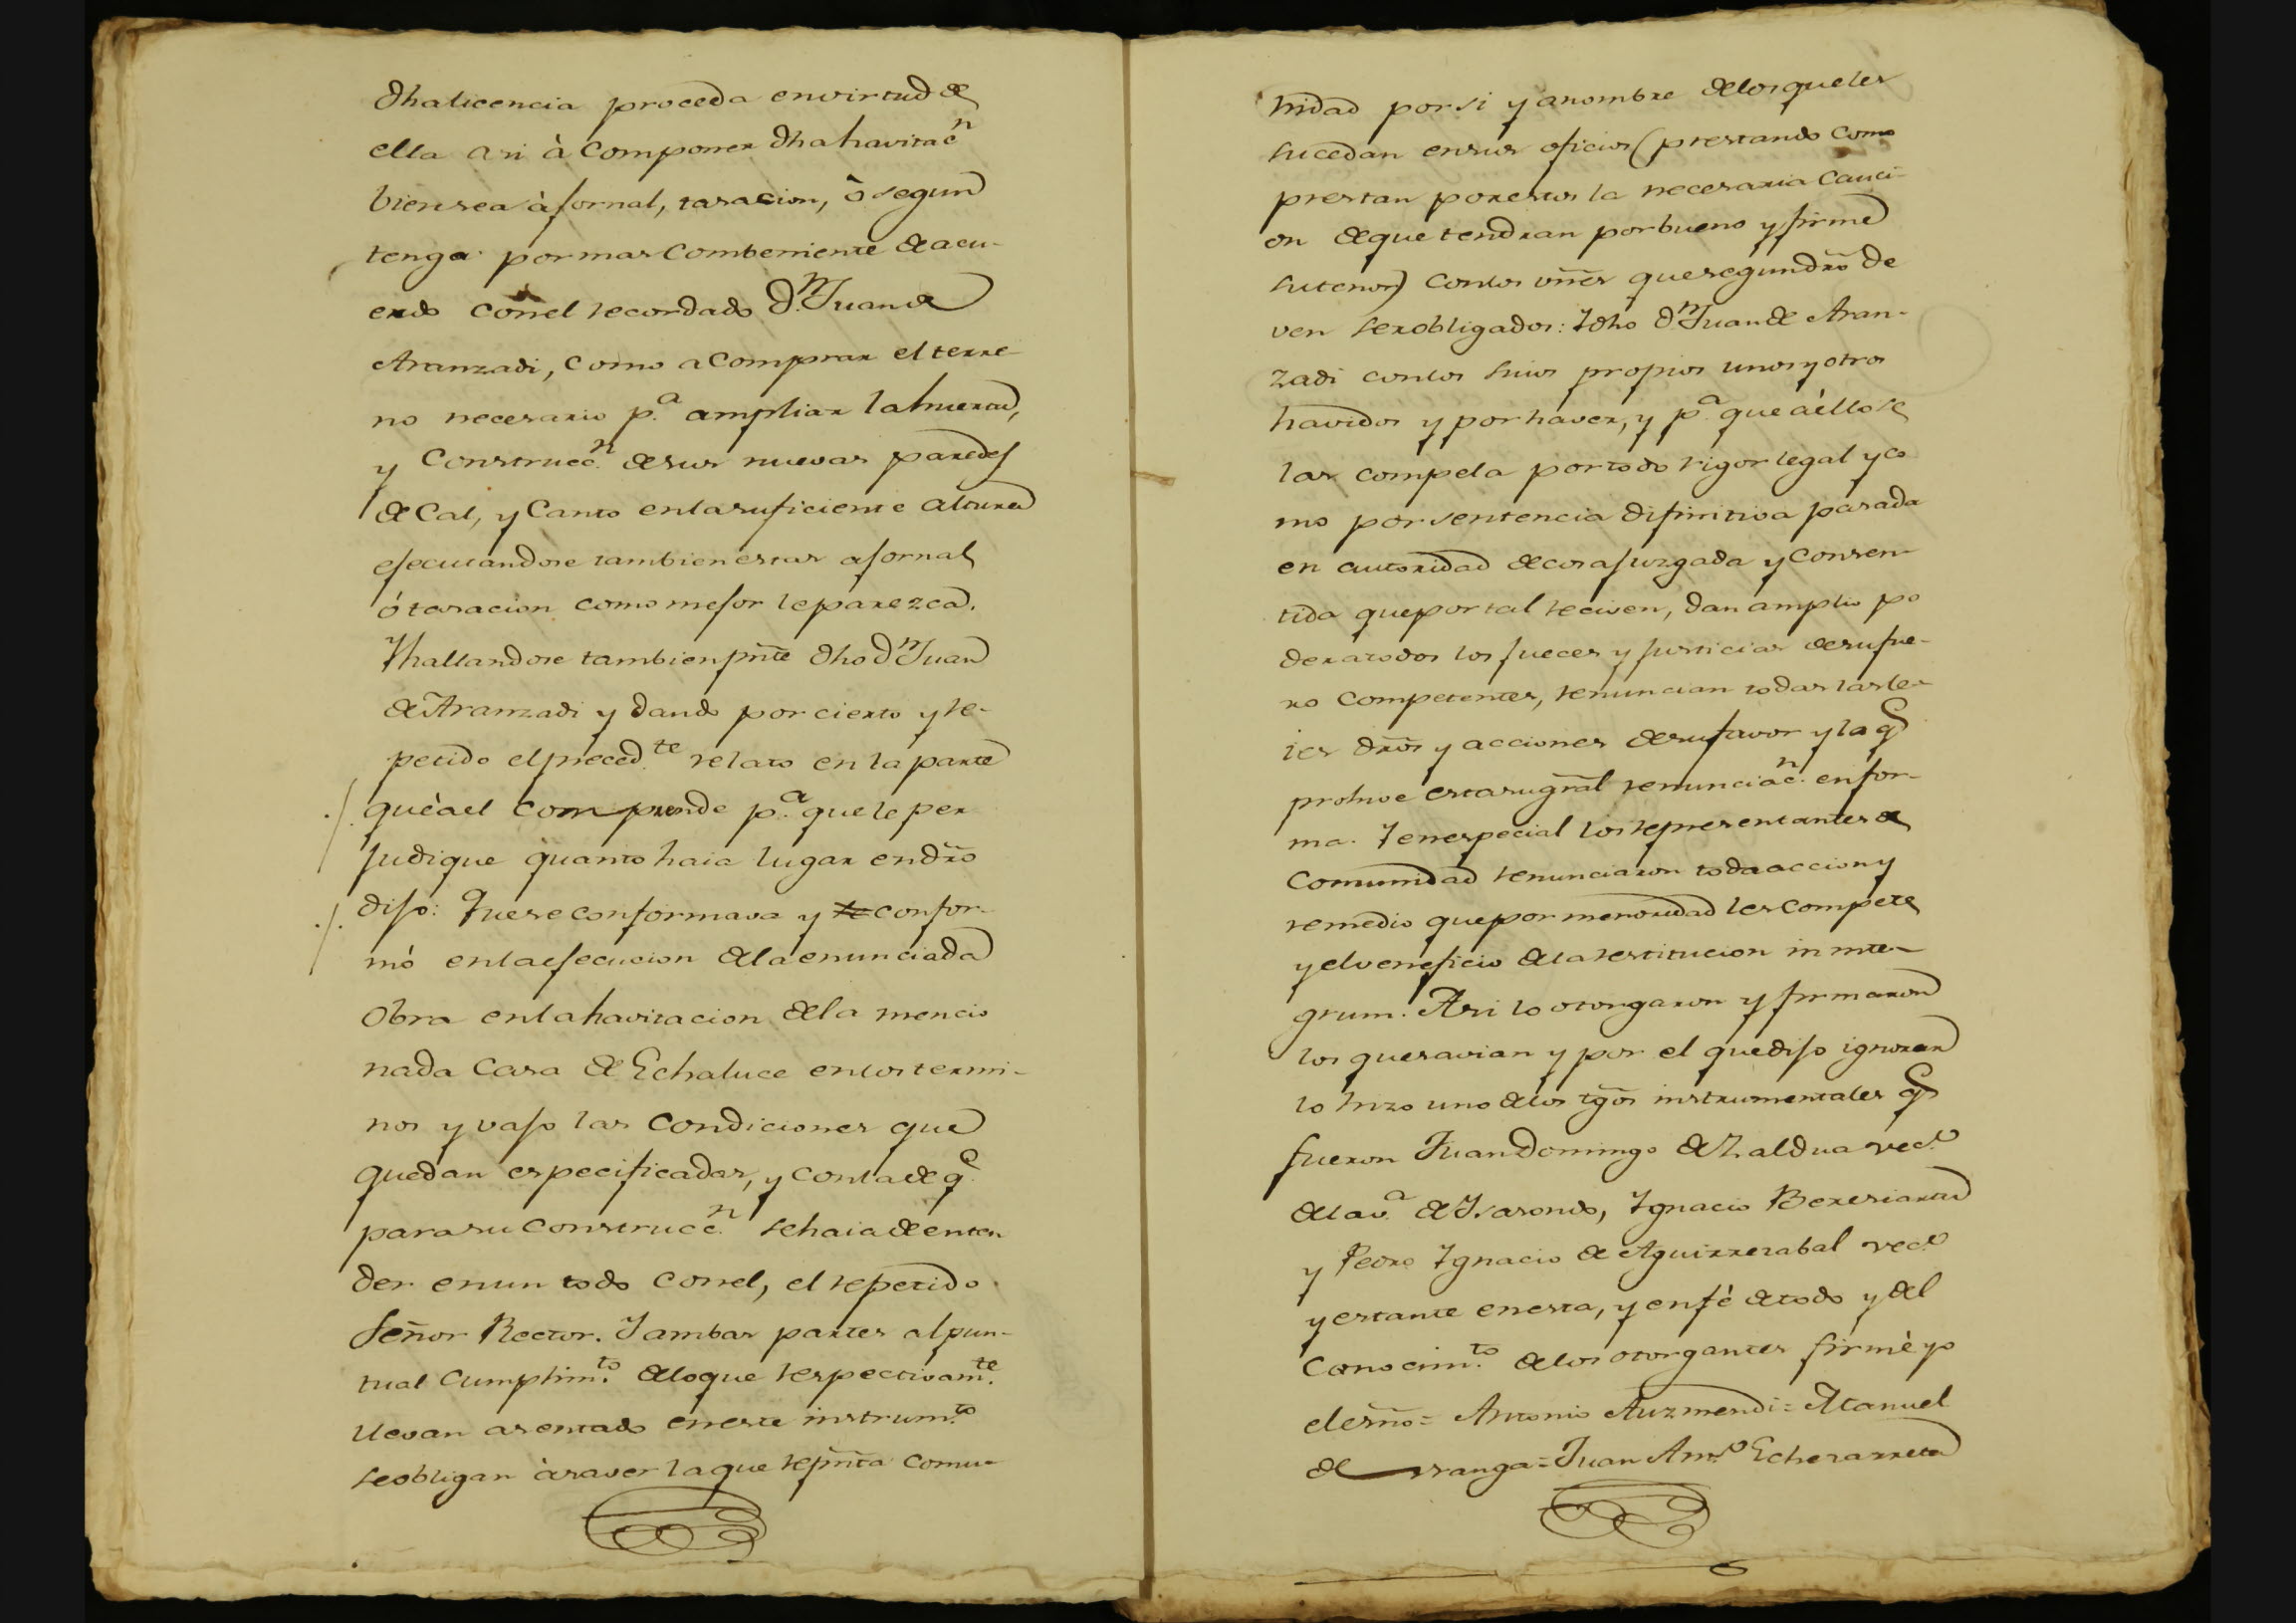 dha licencia proceda en virtud de
ella asi à componer dha havitac.n
bien sea à jornal, tasacion, ò segun
tenga por mas combeniente de acu-
erdo con el recordado d.n Juan de
Aranzadi, como a comprar el terre-
no necesario p.a ampliar la huerta,
y construcc.n de sus nuevas paredes
de cal, y canto en la suficiente altura
ejecutandose tambien estas a jornal
ó tasacion como mejor le parezca.
Y hallandose tambien pñte dho d.n Juan
de Aranzadi y dando por cierto y re-
petido el preced.te relato en la parte
que à el comprende p.a que le per
judique quanto haia lugar en dr̃o
dijo: Que se conformava y se confor-
mó en la ejecucion de la enunciada
obra en la havitacion de la mencio
nada Casa de Echaluce en los termi-
nos y vajo las condiciones que
quedan especificadas, y con la de q.e
para su construcc.n se haia de enten
der en un todo con el, el repetido
Señor Rector. Y ambas partes al pun-
tual cumplim.to de lo que respectivam.te
llevan asentado en este instrum.to
se obligan à saver la que repñta comu-
nidad por si y a nombre de los que les
sucedan en sus oficios (prestando como
prestan por estos la necesaria cauci-
on de que tendran por bueno y firme
su tenor) con los vñes que segun dr̃o de
ven ser obligados: Y dho d.n Juan de Aran-
zadi con los suios propios unos y otros
havidos y por haver, y p.a que à ello se
las compela por todo rigor legal y co
mo por sentencia difinitiva pasada
en autoridad de cosa juzgada y consen-
tida que por tal reciven, dan amplio po
der a todos los jueces y justicias de su fue-
ro competentes, renuncian todas las le-
ies dr̃os y acciones de su favor y la q.e
prohive esta su gr̃al renunciac.n en for-
ma. Y en especial los representantes de
comunidad renunciaron toda accion y
remedio que por menoridad les compete
y el veneficio de la restitucion in inte-
grum. Asi lo otorgaron y firmaron
los que savian y por el que dijo ignorar
lo hizo uno de los tg̃os instrumentales q.e
fueron Juan Domingo de Zaldua vec.o
de la v.a de Ysasondo, Ygnacio Beresiartu
y Pedro Ygnacio de Aguirrezabal vec.o
y estante en esta, y en fè de todo y del
conocim.to de los otorgantes firmè yo
el esño = Antonio Auzmendi = Manuel
de Yranga = Juan Ant.o Echezarreta